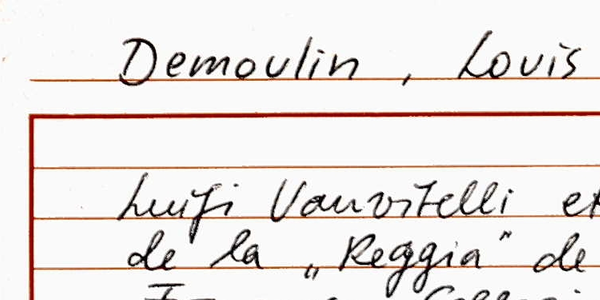 Demoulin, Louis
Luigi Vanvitelli et
de la „Reggia" de